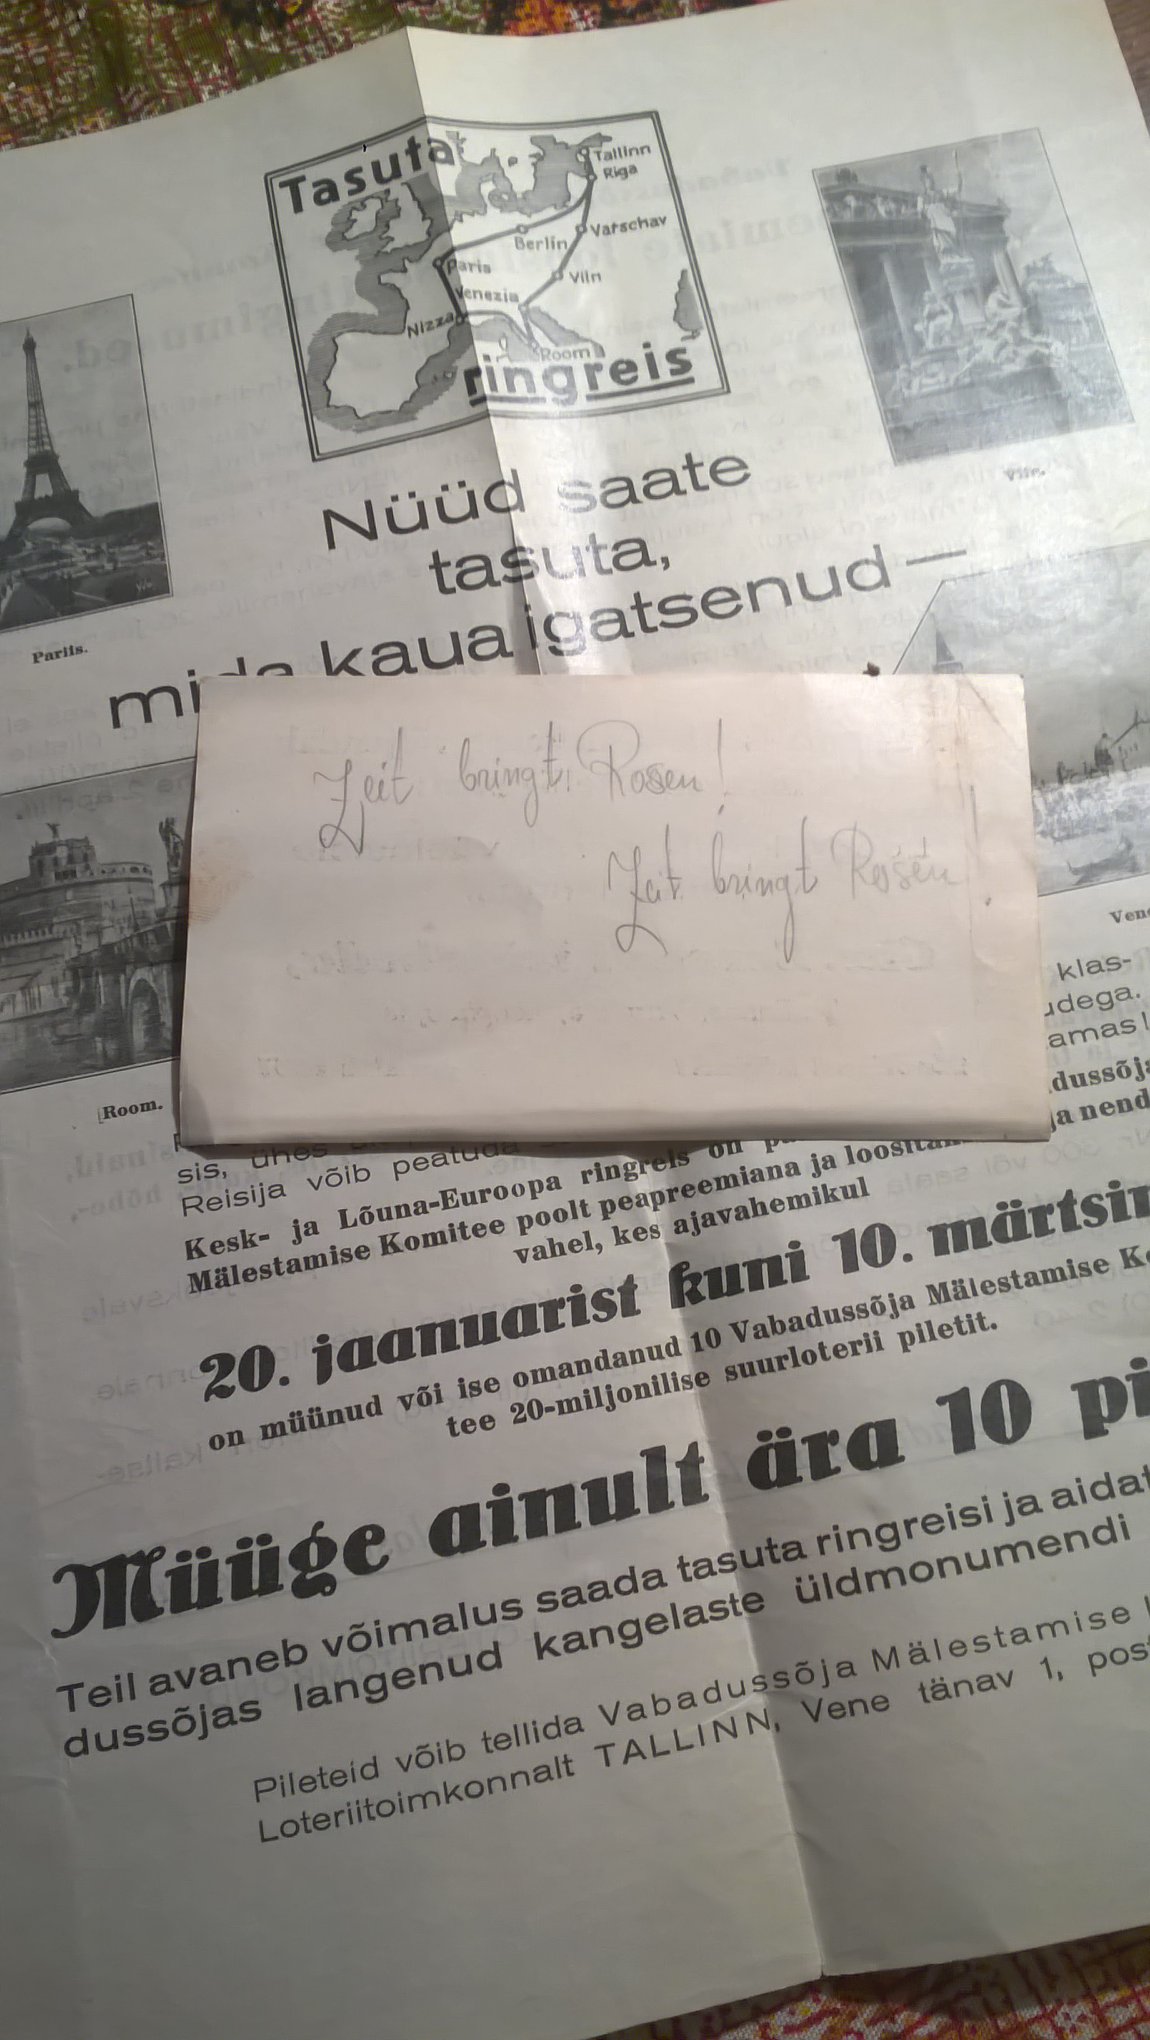 Tasuta
Tallinn
Riga
Varschav
Berlin
Paris
Viin
Venezia
Nizza
Room
ringreis
Viin.
Nüüd saate
tasuta,
mida kaua igatsenud —
Pariis.
Zeit bringt Rosen!
Zeit bringt Rosen!
Room.
klas-
udega.
amas
dussõja
ja nend
sis, ühes
Reisija võib peatuda
Kesk- ja Lõuna-Euroopa ringreis on
Mälestamise Komitee poolt peapreemiana ja loositak
vahel, kes ajavahemikul
20. jaanuarist kuni 10. märtsin
on müünud või ise omandanud 10 Vabadussõja Mälestamise K
tee 20-miljonilise suurloterii piletit.
Müüge ainult ära 10 pi
Teil avaneb võimalus saada tasuta ringreisi ja aidat
dussõjas langenud kangelaste üldmonumendi
Pileteid võib tellida Vabadussõja Mälestamise
Loteriitoimkonnalt TALLINN, Vene tänav 1, post